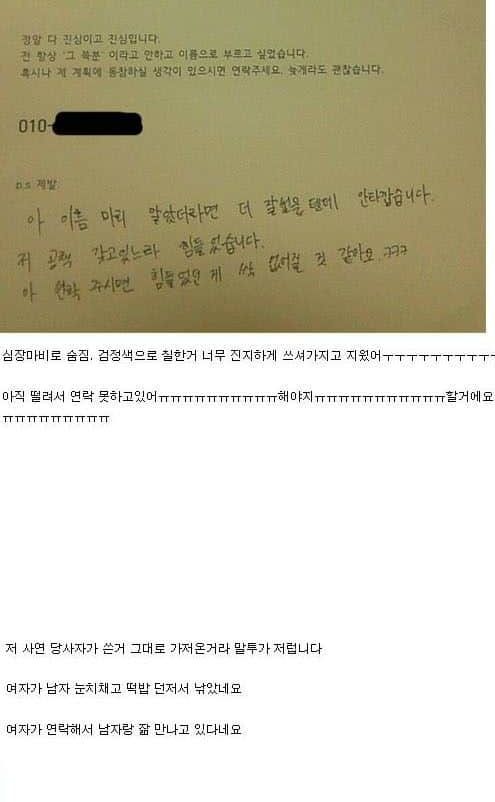 정말 다 진심이고 진심입니다.
전 항상 '그 쪽분' 이라고 안하고 이름으로 부르고 싶었습니다.
혹시나 제 계획에 동참하실 생각이 있으시면 연락주세요. 늦게라도 괜찮습니다.
010-
p.s 제발
아 이름 미리 알았더라면 더 잘썼을 텐데 안타깝습니다.
저 공책 갖고있느라 힘들었습니다.
아 연락 주시면 힘들었던 게 싹 없어질 것 같아요.ㅋㅋㅋ
심장마비로 숨짐. 검정색으로 칠한거 너무 진지하게 쓰셔가지고 지웠어ㅜㅜㅜㅜㅜㅜㅜㅜㅜ
아직 떨려서 연락 못하고있어ㅠㅠㅠㅠㅠㅠㅠㅠㅠㅠ해야지ㅠㅠㅠㅠㅠㅠㅠㅠㅠㅠㅠ할거에요
ㅠㅠㅠㅠㅠㅠㅠㅠㅠ
저 사연 당사자가 쓴거 그대로 가저온거라 말투가 저럽니다
여자가 남자 눈치채고 떡밥 던저서 낚았네요
여자가 연락해서 남자랑 잚 만나고 있다네요